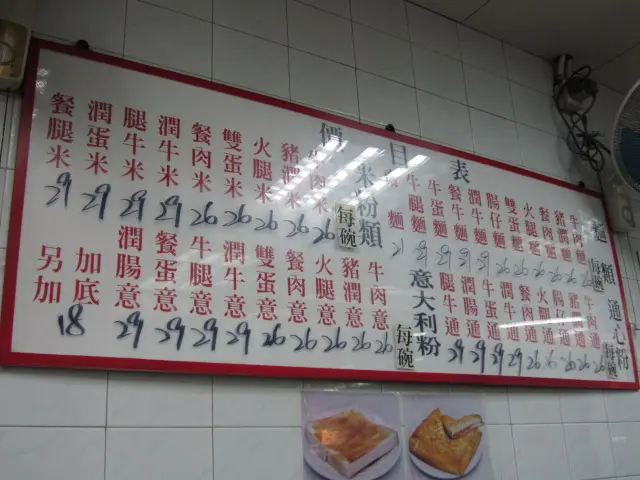 價目表
麵類
每碗
牛肉麵 26
豬潤麵 26
餐肉麵 26
火腿麵 26
雙蛋麵 26
腸仔麵 26
潤牛麵 29
餐牛麵 29
牛蛋麵 29
牛腿麵 29
麵 21
米粉類
每碗
肉米 26
豬潤米 26
火腿米 26
雙蛋米 26
餐肉米 26
潤牛米 29
腿牛米 29
潤蛋米 29
餐腿米 29
通心粉
每碗
牛肉通 26
豬潤通 26
腸仔通 26
火腿通 26
餐肉通 26
潤牛通 29
牛通 29
潤蛋通 29
腿牛通 29
意大利粉
每碗
牛肉意 26
豬潤意 26
火腿意 26
餐肉意 26
雙蛋意 26
潤牛意 29
牛腿意 29
餐蛋意 29
潤腸意 29
加底
另加 18